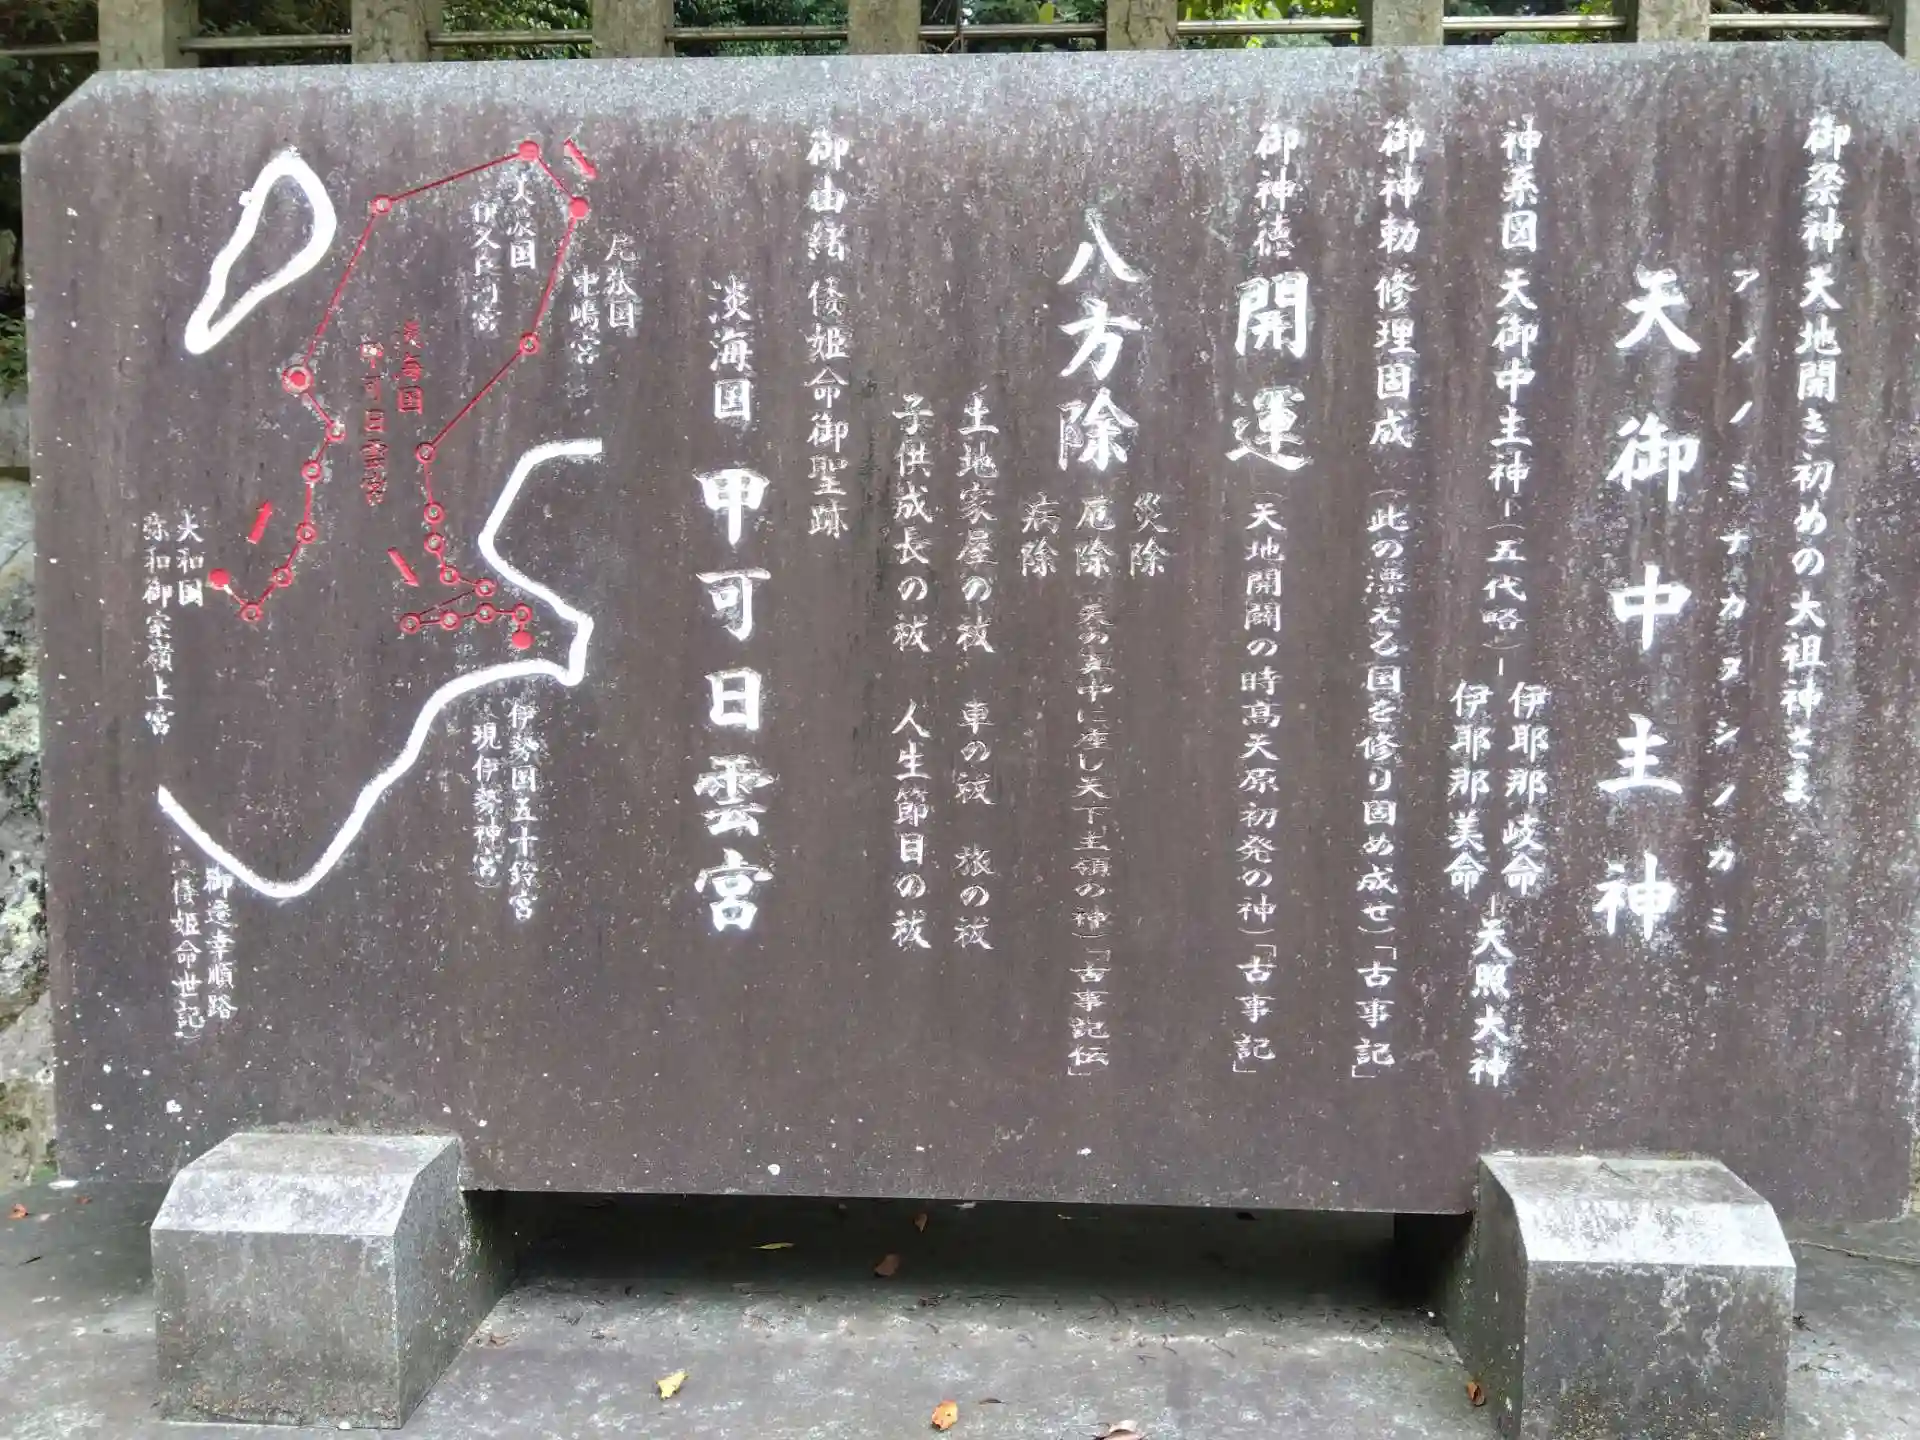 御祭神天地開き初めの大祖神さま
アメノミナカヌシノカミ
天御中主神
神系図天御中主神-(五代略)-
伊耶那岐命
伊耶那美命
-天照大神
御神勅修理固成(此の漂える国を修り固め成せ)「古事記」
御神徳開運(天地開闢の時高天原初発の神)「古事記」
八方除
災除
厄除
病除
天の真中に座し天下主領の神)「古事記伝」
土地家屋の祓 車の祓 旅の祓
子供成長の祓 人生節目の祓
御由緒倭姫命御聖跡
淡海国 甲可日雲宮
尾張国
中嶋宮
大淡国
伊久良河宮
淡海国
甲可日雲宮
伊勢国五十鈴宮
(現伊勢神宮)
大和国
弥和御室嶺上宮
御遷幸順路
(倭姫命世記)